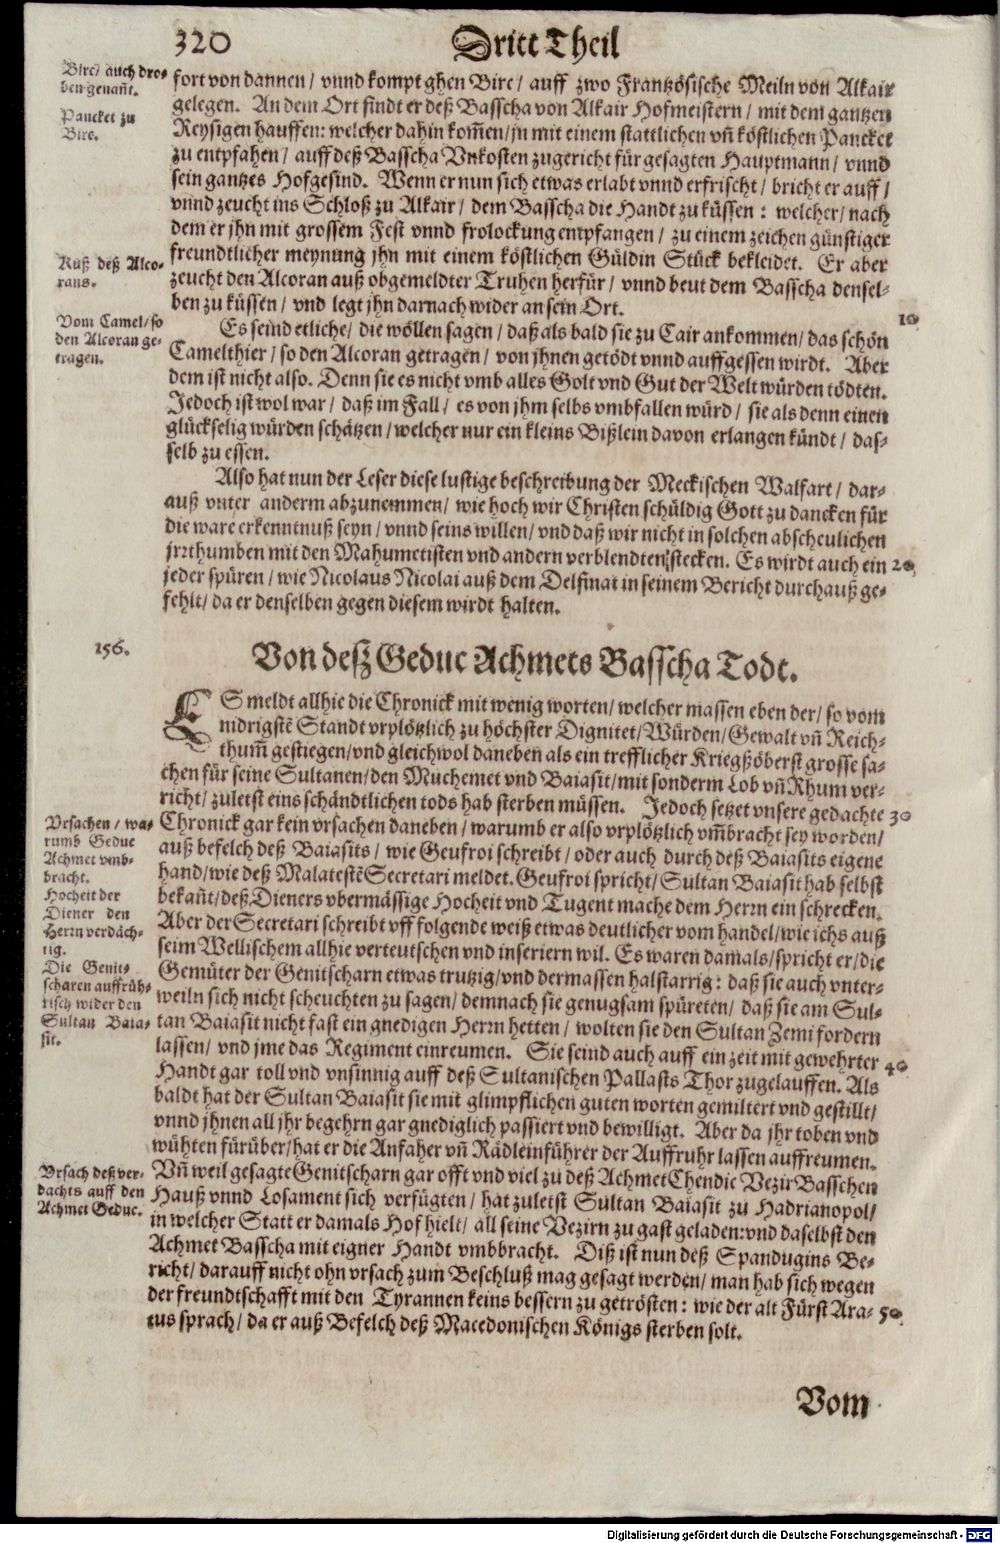 320 Dritt Theil
Bire/ auch dro-
ben genañt.
Pancket zu
Bire.
fort von dannen/ vnnd kompt ghen Bire/ auff zwo Frantzösische Meiln von Alkair
gelegen. An dem Ort findt er deß Basscha von Alkair Hofmeistern/ mit dem gantzen
Reysigen hauffen: welcher dahin kom̃en/ jn mit einem stattlichen vñ köstlichen Pancket
zu entpfahen/ auff deß Basscha Vnkosten zugericht für gesagten Hauptmann/ vnnd
sein gantzes Hofgesind. Wenn er nun sich etwas erlabt vnnd erfrischt/ bricht er auff/
vnnd zeucht ins Schloß zu Alkair/ dem Basscha die Handt zu küssen: welcher/ nach
dem er jhn mit grossem Fest vnnd frolockung entpfangen/ zu einem zeichen günstiger
freundtlicher meynung jhn mit einem köstlichen Güldin Stück bekleidet. Er aber
zeucht den Alcoran auß obgemeldter Truhen herfür/ vnnd beut dem Basscha densel-
ben zu küssen/ vnd legt jhn darnach wider an sein Ort.
Kuß deß Alco-
rans.
Vom Camel/ so
den Alcoran ge-
tragen.
10
Es seind etliche/ die wöllen sagen/ daß als bald sie zu Cair ankommen/ das schön
Camelthier/ so den Alcoran getragen/ von jhnen getödt vnnd auffgessen wirdt. Aber
dem ist nicht also. Denn sie es nicht vmb alles Golt vnd Gut der Welt würden tödten.
Jedoch ist wol war/ daß im Fall/ es von jhm selbs vmbfallen würd/ sie als denn einen
glückselig würden schätzen/ welcher nur ein kleins Bißlein davon erlangen kündt/ das-
selb zu essen.
Also hat nun der Leser diese lustige beschreibung der Meckischen Walfart/ dar-
auß vnter anderm abzunemmen/ wie hoch wir Christen schüldig Gott zu dancken für
die ware erkenntnuß seyn/ vnnd seins willen/ vnd daß wir nicht in solchen abscheulichen
jrrthumben mit den Mahumetisten vnd andern verblendten stecken. Es wirdt auch ein 20
jeder spüren/ wie Nicolaus Nicolai auß dem Delfinat in seinem Bericht durchauß ge-
fehlt/ da er denselben gegen diesem wirdt halten.
156.
Von desz Geduc Achmets Basscha Todt.
ES meldt allhie die Chronick mit wenig worten/ welcher massen eben der/ so vom
nidrigstẽ Standt vrplötzlich zu höchster Dignitet/ Würden/ Gewalt vñ Reich-
thum̃ gestiegen/ vnd gleichwol daneben als ein trefflicher Kriegßöberst grosse sa-
chen für seine Sultanen/ den Muchemet vnd Baiasit/ mit sonderm Lob vñ Rhum ver-
richt/ zuletst eins schändtlichen tods hab sterben müssen. Jedoch setzet vnsere gedachte 30
Chronick gar kein vrsachen daneben/ warumb er also vrplötzlich vm̃bracht sey worden/
auß befelch deß Baiasits/ wie Geufroi schreibt/ oder auch durch deß Baiasits eigene
hand/ wie deß Malatestẽ Secretari meldet. Geufroi spricht/ Sultan Baiasit hab selbst
bekañt/ deß Dieners vbermässige Hocheit vnd Tugent mache dem Herrn ein schrecken.
Aber der Secretari schreibt vff folgende weiß etwas deutlicher vom handel/ wie ichs auß
seim Wellischem allhie verteutschen vnd inseriern wil. Es waren damals/ spricht er/ die
Gemüter der Genitscharn etwas trutzig/ vnd dermassen halstarrig: daß sie auch vnter-
weiln sich nicht scheuchten zu sagen/ demnach sie genugsam spüreten/ daß sie am Sul-
tan Baiasit nicht fast ein gnedigen Herrn hetten/ wolten sie den Sultan Zemi fordern
lassen/ vnd jme das Regiment einreumen. Sie seind auch auff ein zeit mit gewehrter 40
Handt gar toll vnd vnsinnig auff deß Sultanischen Pallasts Thor zugelauffen. Als
baldt hat der Sultan Baiasit sie mit glimpflichen guten worten gemiltert vnd gestillt/
vnnd jhnen all jhr begehrn gar gnediglich passiert vnd bewilligt. Aber da jhr toben vnd
wühten fürüber/ hat er die Anfaher vñ Rädleinführer der Auffruhr lassen auffreumen.
Vñ weil gesagte Genitscharn gar offt vnd viel zu deß Achmet Chendic Vezir Basschen
Hauß vnnd Losament sich verfügten/ hat zuletst Sultan Baiasit zu Hadrianopol/
in welcher Statt er damals Hof hielt/ all seine Vezirn zu gast geladen: vnd daselbst den
Achmet Basscha mit eigner Handt vmbbracht. Diß ist nun deß Spandugins Be-
richt/ darauff nicht ohn vrsach zum Beschluß mag gesagt werden/ man hab sich wegen
der freundtschafft mit den Tyrannen keins bessern zu getrösten: wie der alt Fürst Ara- 50
tus sprach/ da er auß Befelch deß Macedonischen Königs sterben solt.
Vrsachen/ wa-
rumb Geduc
Achmet vmb-
bracht.
Hocheit der
Diener den
Herrn verdäch-
tig.
Die Genit-
scharen auffrüh-
risch wider den
Sultan Baia-
sit.
Vrsach deß ver-
dachts auff den
Achmet Geduc.
Vom
Digitalisierung gefördert durch die Deutsche Forschungsgemeinschaft - DFG